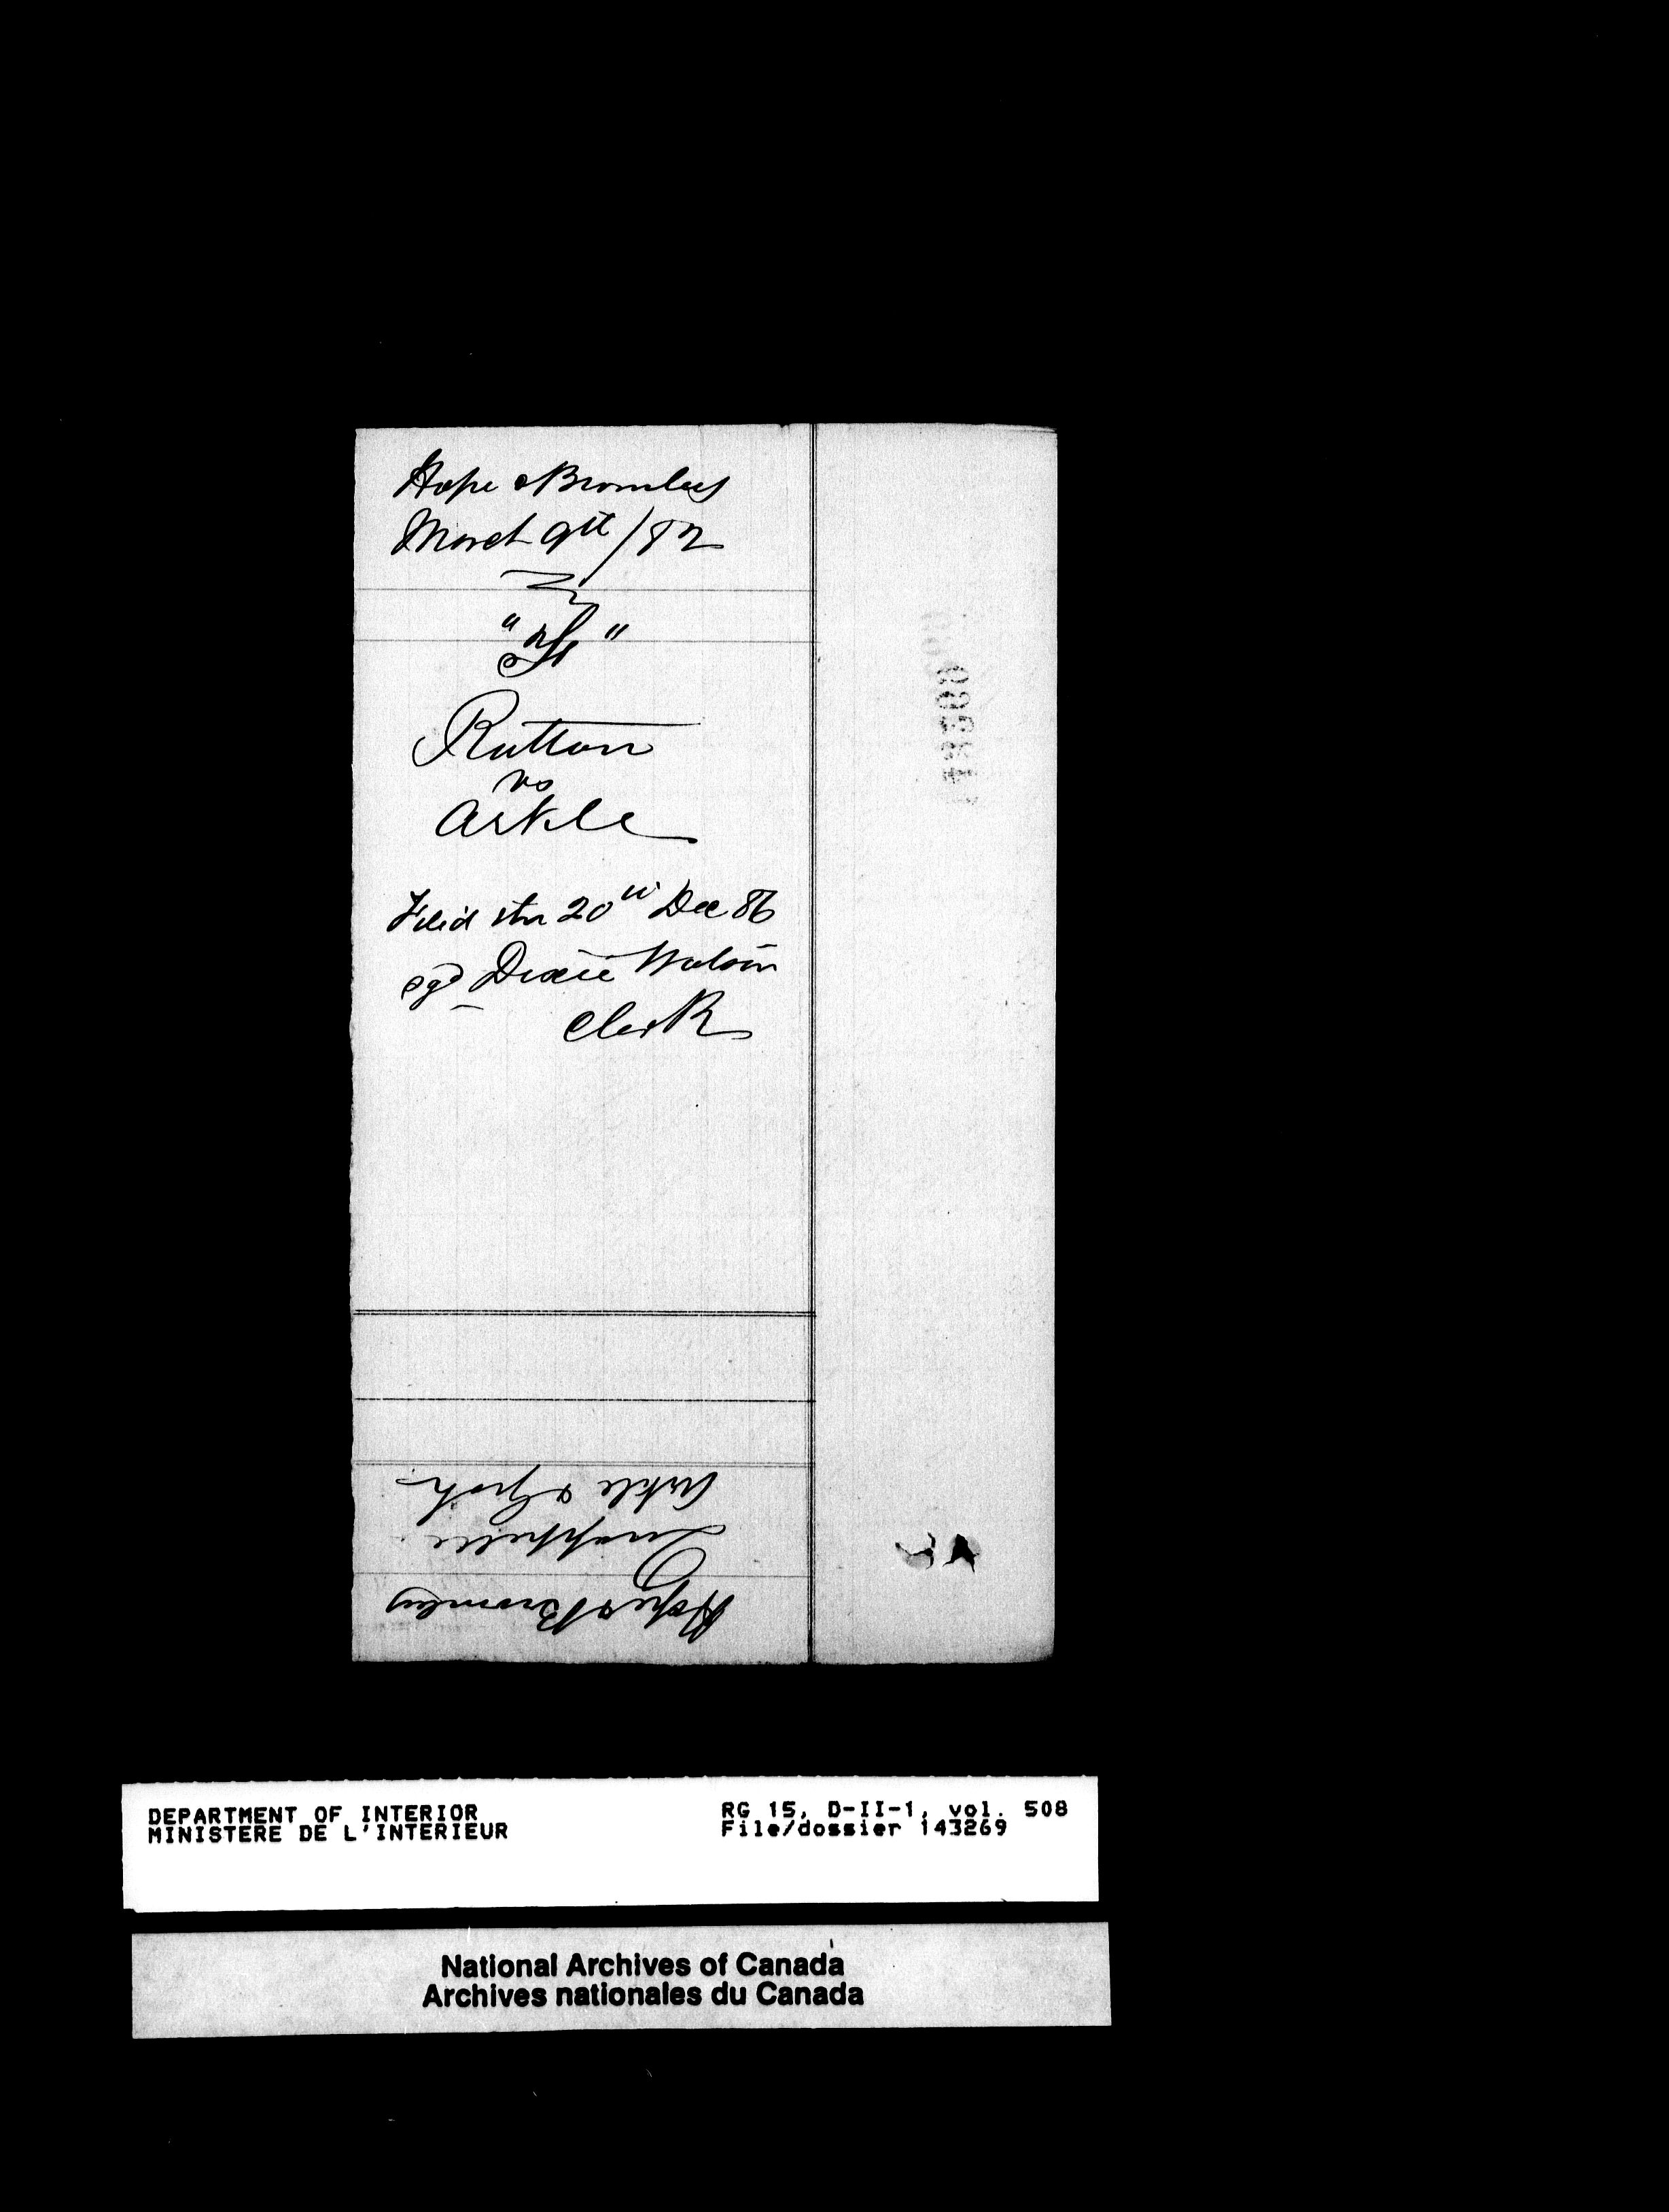 Hope & Bromley
March 9th /82
"H"
Ruttan
vs
Arkle
Filed this 20th Dec 86
sgd Dixie Watson
Clerk
Arkle &
Quappelle
Hope & Bromley
DEPARTMENT OF INTERIOR
MINISTERE DE L'INTERIEUR
RG 15, D-II-1, vol. 508
File/dossier 143269
National Archives of Canada
Archives nationales du Canada